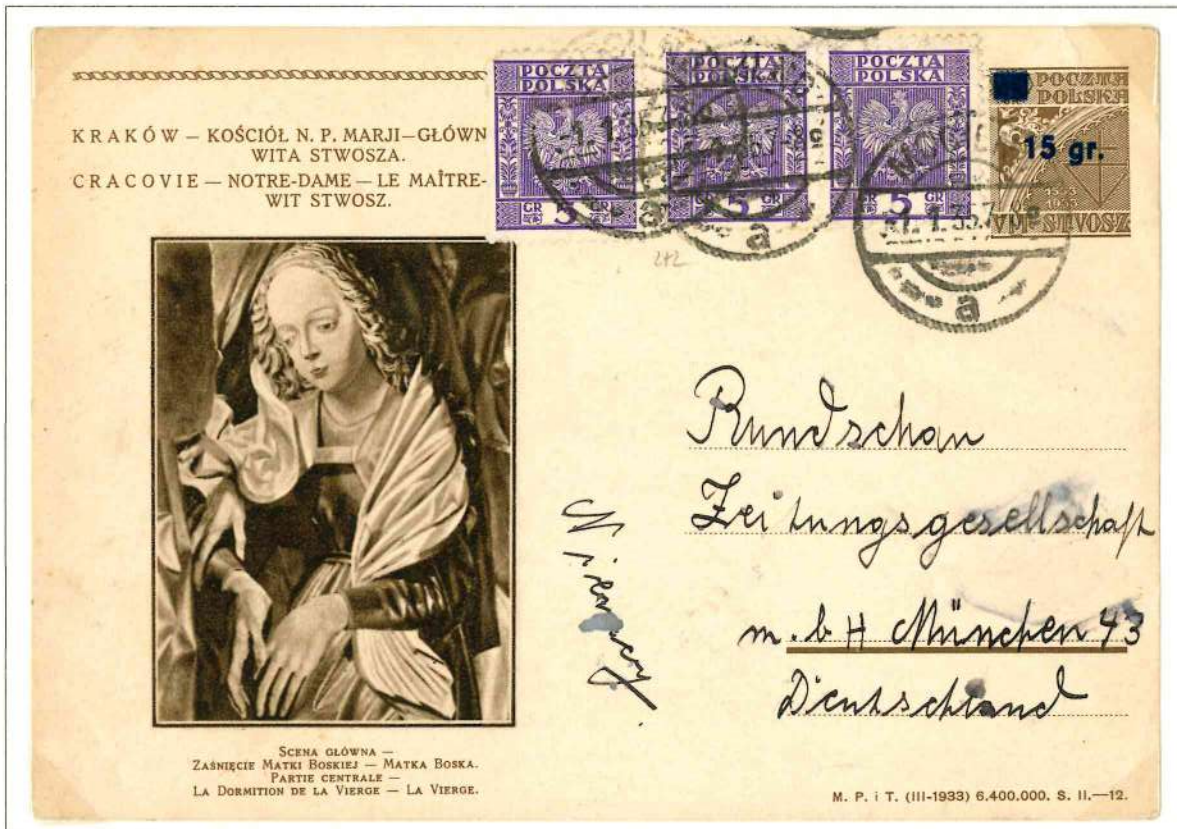 KRAKÓW – KOŚCIÓŁ N. P. MARJI–GŁÓWN
WITA STWOSZA.
CRACOVIE – NOTRE-DAME – LE MAÎTRE-
WIT STWOSZ.
POCZTA
POLSKA
GR 5 GR
POCZTA
POLSKA
GR 5 GR
POCZTA
POLSKA
GR 5 GR
POCZTA
POLSKA
15 gr.
1533
1933
STVOSZ
a
a
Rundschau
Zeitungsgesellschaft
m. b H München 43
Deutschland
Niemcy
SCENA GŁÓWNA –
ZAŚNIĘCIE MATKI BOSKIEJ – MATKA BOSKA.
PARTIE CENTRALE –
LA DORMITION DE LA VIERGE – LA VIERGE.
M. P. i T. (III-1933) 6.400.000. S. II.—12.